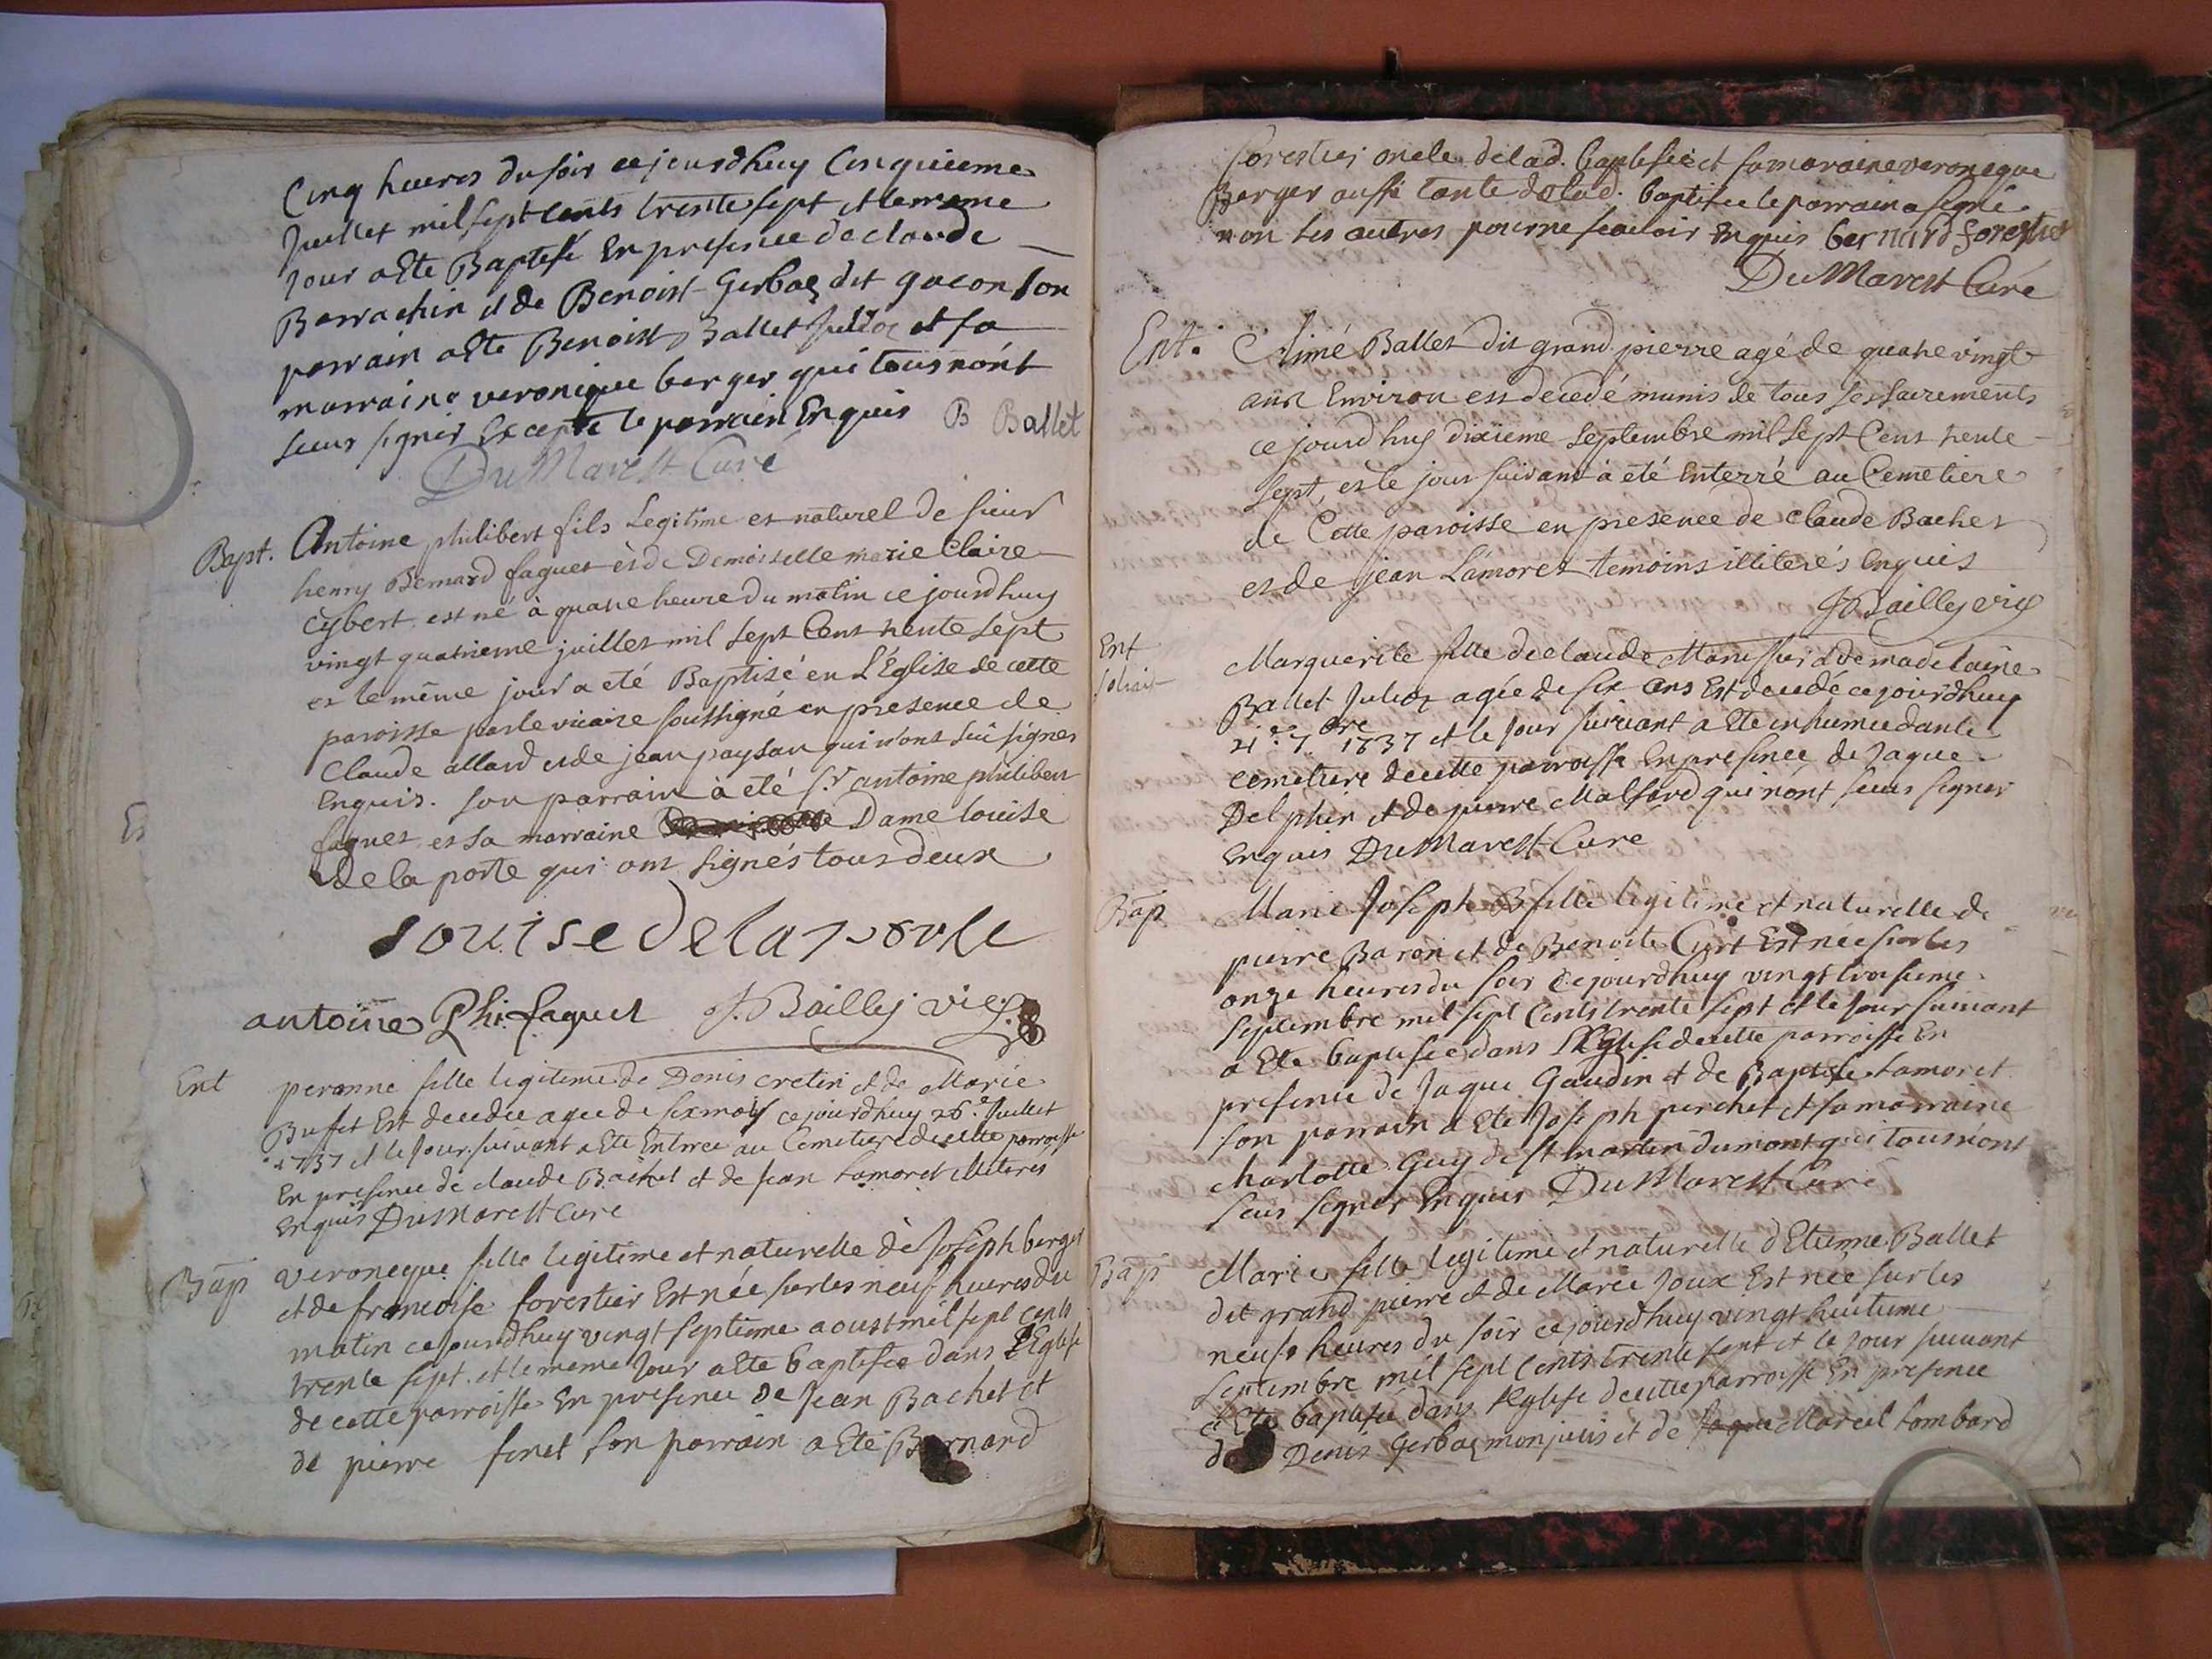 Cinq heures du soir cejourdhuy Cinquieme
Juillet mil sept cents trente sept et le meme
jour a Ete Baptisé En presence de claude
Barrachin et de Benoist Gerbaz dit gacon son
parrain a Ete Benoist Ballet Jullioz et sa
marraine veronique berger qui tous n'ont
sceus signer Excepte le parrain Enquis B Ballet
DuMarest Curé
Bapt. Antoine philibert fils Legitime et naturel de sieur
henry Bernard faguet et de Demoiselle marie Claire
Cybert est né à quatre heure du matin ce jourdhuy
vingt quatrieme juillet mil sept Cent trente sept
et le même jour a eté Baptisé en L'Eglise de cette
paroisse par le vicaire soussigné en presence de
Claude allard et de jean paysan qui n'ont sçu signer
Enquis. son parrain à eté s.r antoine philibert
faguet et sa marraine Dame louise
de la porte qui ont signés tous deux
Louise De la porte
antoine Phi. faguet J. Bailly vic.
Ent peronne fille legitime de Denis cretin et de Marie
Bufet Est decedee agee de six mois ce jourdhuy 26.e Juillet
1737 et le Jour suivant a Ete Entrree au Cemetiere de cette parroisse
En presence de claude Bachet et de Jean Lamoret illiteres
Enquis DuMarest Curé
Bap veroneque fille legitime et naturelle de Joseph berger
et de francoise forestier Est née sur les neuf heures du
matin cejourdhuy vingt septieme aoust mil sept cents
trente sept. et le meme Jour a Ete baptisée dans L'Eglise
de cette parroisse En presence de Jean Bachet et
de pierre feret son parrain a Ete Bernard
forestier oncle de lad. baptisée et sa maraine veroneque
Berger aussi tante de lad. baptisee le parrain a signé
non les autres pour ne scavoir Enquis bernard forestier
DuMarest Curé
Ent. Aimé Ballet dit grand pierre agé de quatre vingt
ans Environ est decedé munis de tous ses sacrements
ce jourd'huy dixieme Septembre mil sept Cent trente
sept, et le jour suivant à eté Enterré au Cemetiere
de Cette paroisse en presence de Claude Bachet
et de jean Lamoret temoins illiterés Enquis
J Bailly vic
Ent
Marguerite fille de claude Manissier et de madelaine
Ballet Julioz agée de six ans Est decedé cejourdhuy
21.e 7.bre 1737 et le Jour suivant a Ete inhumee dans le
cemetiere de cette parroisse En presence de Jaque
Delphin et de pierre Malfard qui n'ont sceus signer
Enquis DuMarest Curé
Bap Marie Joseph B fille legitime et naturelle de
pierre Baron et de Benoite Curt Est née sur les
onze heures du soir cejourdhuy vingt troisieme
septembre mil sept Cents trente sept et le Jour suivant
a Ete baptisée dans L'Eglise de cette parroisse En
presence de Jaque Gaudin et de Baptiste Lamoret
son parrain a Ete Joseph perchet et sa marraine
charlotte Guy de st martin dumont qui tous n'ont
sceus signer Enquis DuMarest Curé
Bap Marie fille legitime et naturelle d'Etienne Ballet
dit grand pierre et de Marie Joux Est née sur les
neufs heures du soir cejourdhuy vingt huitieme
septembre mil sept Cents trente sept et le Jour suivant
a Ete baptisée dans L'Eglise de cette parroisse En presence
de Denis Gerbaz monjuis et de Jaque Marcel Lombard